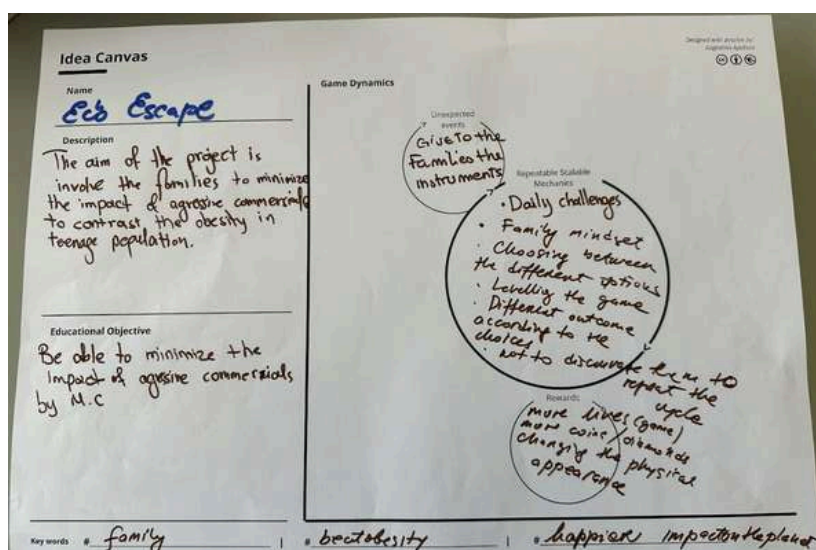 Idea Canvas
Designed with passion by:
Name
Eco Escape
Description
The aim of the project is
involve the families to minimize
the impact of agressive commercials
to contrast the obesity in
teenage population.
Educational Objective
Be able to minimize the
impact of agresine commercials
by M.C
Game Dynamics
Unexpected
events
Give to the
Families the
instruments
Repeatable Scalable
Mechanics
• Daily challenges
• Family mindset
• Choosing between
the different options
• Levelling the game
• Different outcome
according to the
choices
• not to discourate them to
repeat the
cycle
Rewards
more lives (game)
more coins/diamonds
changing the physical
appearance
Key words # family
# beatobesity
# happier impactontheplanet